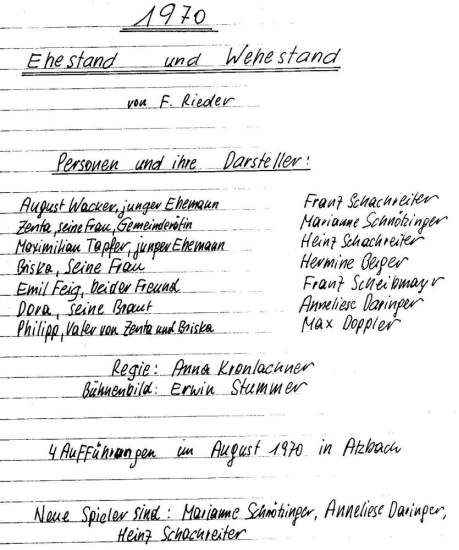 1970
Ehestand und Wehestand
von F. Rieder
Personen und ihre Darsteller:
August Wacker, junger Ehemann Franz Schachreiter
Zenta, seine Frau, Gemeinderätin Marianne Schnötzinger
Maximilian Tapfer, junger Ehemann Heinz Schachreiter
Briska, Seine Frau Hermine Berger
Emil Feig, beider Freund Franz Scheibmayr
Dora, seine Braut Anneliese Daringer
Philipp, Vater von Zenta und Briska Max Doppler
Regie: Anna Kronlachner
Bühnenbild: Erwin Stummer
4 Aufführungen im August 1970 in Atzbach
Neue Spieler sind: Marianne Schnötzinger, Anneliese Daringer,
Heinz Schachreiter